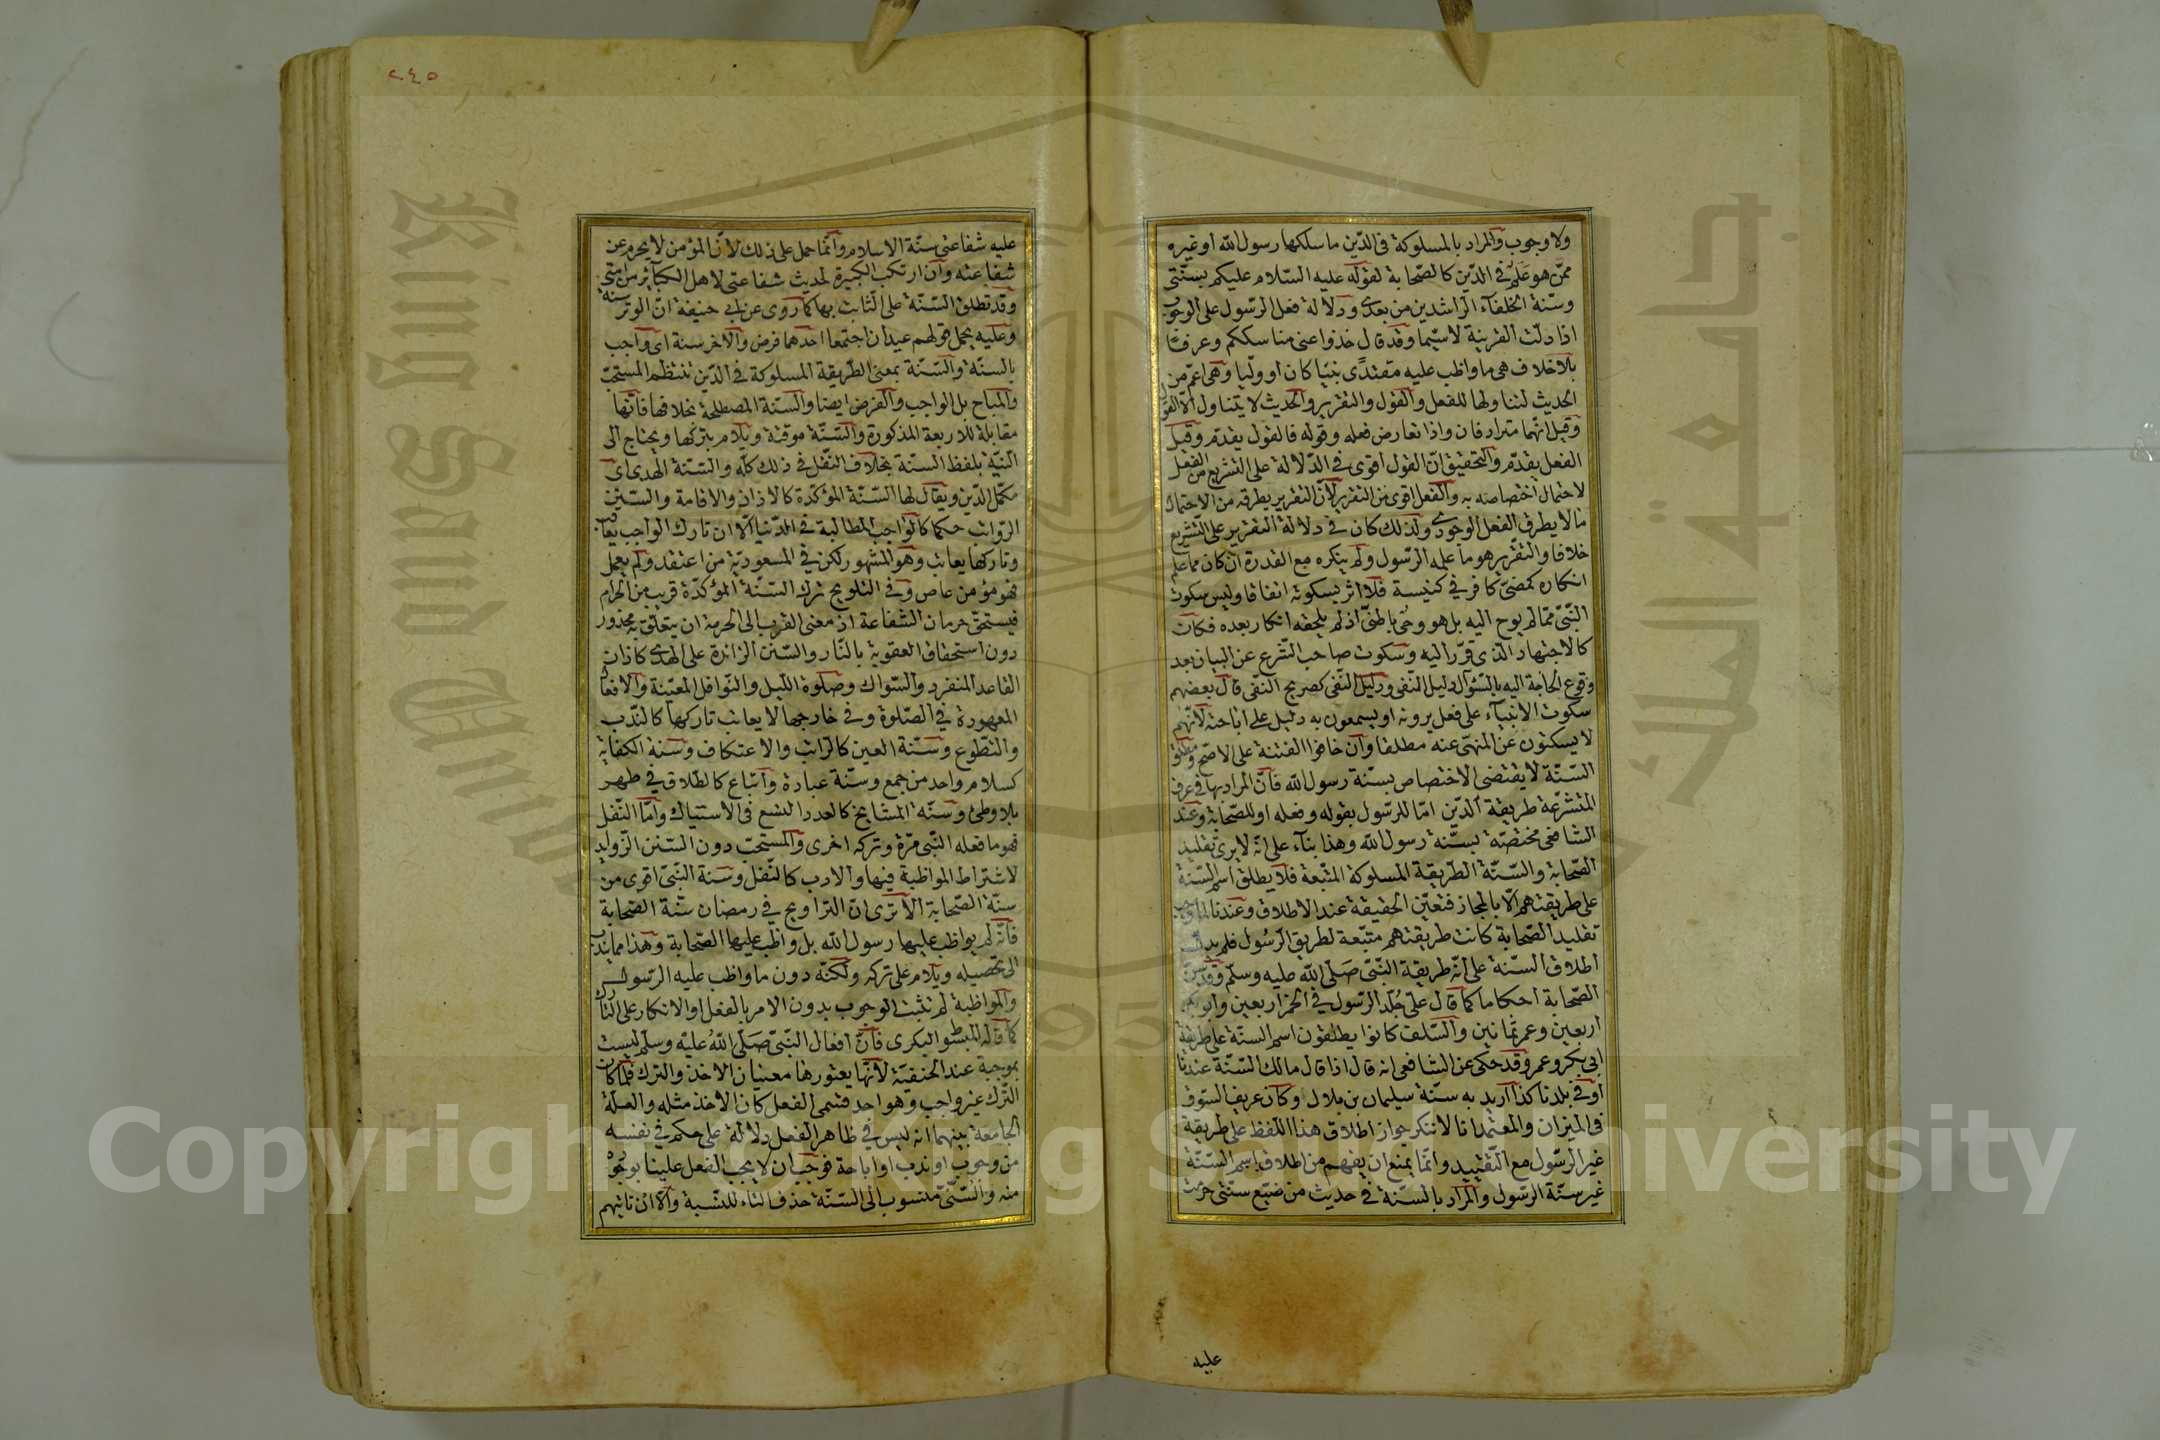 ولا وجوب والمراد بالمسلوكة فى الدّين ما سلكها رسول الله او غيره
ممّن هو عَلَمٌ في الدّين كالصّحابة لقوله عليه السّلام عليكم بسنّتى
وسنّة الخلفآء الرّاشدين من بعدى ودلالة فعل الرّسول على الوجوب
اذا دلّت القرينة لاسيّما وقد قال خذوا عنى مناسككم وعرفًا
بلا خلاف هى ما واظب عليه مقتدًى نبيّا كان او وليّا وهى اعمّ من
الحديث لتناولها للفعل والقول والتقرير والحديث لا يتناول الّا القول
وقيل انّهما مترادفان واذا تعارض فعله وقوله فالقول يقدّم وقيل
الفعل يقدّم والتحقيق انّ القول اقوى فى الدّلالة على التشريع من الفعل
لاحتمال اختصاصه به والفعل اقوى من التقرير لأنّ التقرير يطرقه من الاحتمال
ما لا يطرق الفعل الوجودى ولذلك كان في دلالة التقرير على التّشريع
خلافا والتقرير هو ما علمه الرّسول ولم ينكره مع القدرة ان كان مما علم
انكاره كمضىّ كافر في كنيسة فلا اثر بسكوته اتفاقا وليس سكوت
النّبىّ ممّا لم يوح اليه بل هو وحْى باطنىّ اذ لم يلحقه انكار بعده فكان
كالاجتهاد الذى قرّر اليه وسكوت صاحب الشّرع عن البيان بعد
وقوع الحاجة اليه بالسّؤال دليل النّفى ودليل النّفى كصريح النّفى قال بعضهم
سكوت الانبيآء على فعل يرونه او يسمعون به دليل على اباحته لأنّهم
لا يسكتون عن المنهىّ عنه مطلقا وان خافوا الفتنة على الاصّح ومطلق
السّنّة لا يقتضى الاختصاص بسنّة رسول الله فانّ المراد بها في عرف
المتشرّعة طريقة الدّين امّا للرّسول بقوله وفعله او للصّحابة وعند
الشافعى مختصّة بسنّة رسول الله وهذا بنآء على انّه لا يرى تقليد
الصّحابة والسّنّة الطّريقة المسلوكة المتّبعة فلا يطلق اسم السّنّة
على طريقتهم الّا بالمجاز فتعيّن الحقيقة عند الاطلاق وعندنا لما وجب
تقليد الصّحابة كانت طريقتهم متّبعة لطريق الرّسُول فلم يدلّ
اطلاق السنّة على انّه طريقة النّبىّ صَلّى الله عليه وسلّم وقد سنّ
الصّحابة احكاما كما قال علىّ جُلَد الرّسول في الخمر اربعين وابو بكر
اربعين وعمر ثمانين والسّلف كانوا يطلقون اسم السنّة على طريقة
ابى بكر وعمر وقد حكى عن الشافعى انه قال اذا قال مالك السّنّة عندنا
او في بلدنا كذا اريد به سنّة سليمان بن بلال وكان عريف السّوق
فى الميزان والمعتمد انا لا ننكر جواز اطلاق هذا اللّفظ على طريقة
غير الرّسول مع التّقييد وانّما يمنع ان يفهم من اطلاق اسم السّنّة
غير سنّة الرّسول والمراد بالسنّة في حديث من ضيّع سنّتى حرمت
عليه
٢٤٥
عليه شفاعتى سنّة الاسلام وانّما حمل على ذلك لأنّ المؤمن لا يحرم عن
شفاعته وان ارتكب الكبيرة لحديث شفاعتى لاهل الكبآئر من امّتى
وقد تطلق السّنّة على الثابت بها كما روى عن ابى حنيفة انّ الوتر سنة
وعليه يحمل قولهم عيدان اجتمعا احدهما فرض والاخر سنة اى واجب
بالسنّة والسّنّة بمعنى الطّريقة المسلوكة في الدّين تنتظم المستحبّ
والمباح بل الواجب والفرض ايضا والسّنة المصطلحة بخلافها فانّها
مقابلة للاربعة المذكورة والسّنّة موقتة ويلام بتركها ويحتاج الى
النّيّة بلفظ السنّة بخلاف النّفل في ذلك كلّه والسّنّة الهدى اى
مكمّل الدّين ويقال لها السّنّة المؤكّدة كالاذان والاقامة والسّنن
الرّواتب حكما كالواجب المطالبة في الدّنيا الّا ان تارك الواجب يعاقب
وتاركها يعاتب وهو المشهور لكن في المسعوديّة من اعتقد ولم يعمل
فهو مؤمن عاص وفى التلويح ترك السّنّة المؤكّدة قريب من الحرام
فيستحقّ حرمان الشفاعة اذ معنى القرب الى الحرمة ان يتعلّق به محذور
دون استحقاق العقوبة بالنّار والسّنن الزائدة على الهدى كاذان
القاعد المنفرد والسّواك وصلوة اللّيل والنّوافل المعيّنة والافعال
المعهودة في الصّلوة وفى خارجها لا يعاتب تاركها كالنّدب
والتطّوع وسنّة العين كالرّاتب والاعتكاف وسنة الكفاية
كسلام واحد من جمع وسنّة عبادة واتباع كالطّلاق في طهر
بلا وطئ وسنّة المشايخ كالعدد التسع فى الاستياك وامّا النّفل
فهو ما فعله النّبى مرّة وتركه اخرى والمستحبّ دون السّنن الزّوايد
لاشتراط المواظبة فيها والادب كالنّفل وسنة النّبىّ اقوى من
سنّة الصّحابة الا ترى ان التراويح في رمضان سنّة الصّحابة
فانّه لم يواظب عليها رسول الله بل واظب عليها الصّحابة وهذا مما يندب
الى تحصيله ويلام على تركه ولكنّه دون ما واظب عليه الرّسول
والمواظبة لم تثبت الوجوب بدون الامر بالفعل او الانكار على التارك
كما قاله المبسّط البكرى فانّ افعال النّبىّ صَلّى اللهُ عليه وسلّم ليست
بموجبة عند الحنفيّة لأنّها يعتورها معنيان الاخذ والترك فلما كان
الترك غير واجب وهو احد قسمى الفعل كان الاخذ مثله والعلّة
الجامعة بينهما انه ليس في ظاهر الفعل دلالة على حكم في نفسه
من وجوب او ندب او اباحة فوجب ان لا يجب الفعل علينا بوجُوده
منه والسّنّىّ منسوب الى السّنّة حذف التاء للنّسبة والاائ ثانيهم